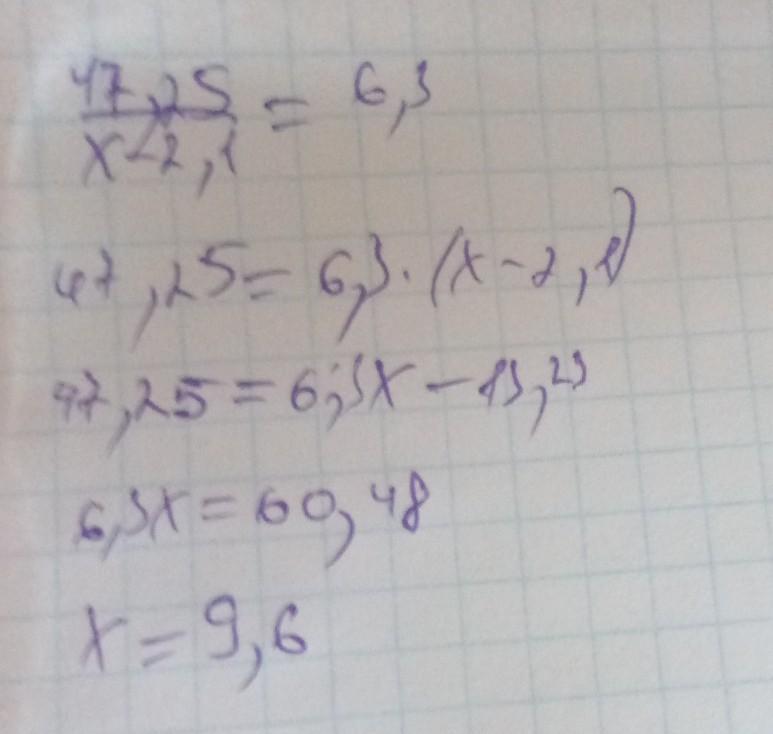 47,25/x-2,1 = 6,3
47,25 = 6,3·(x-2,1)
47,25 = 6,3x - 13,23
6,3x = 60,48
x = 9,6